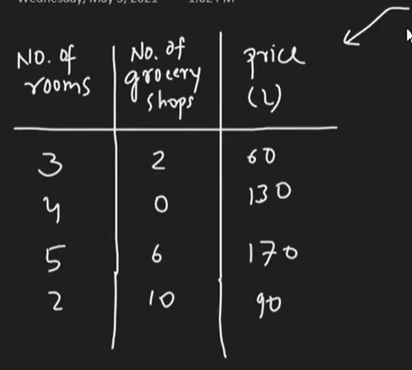 Wednesday, May 5, 2021 1:02 PM
NO. of rooms No. of grocery shops price (L)
3 2 60
4 0 130
5 6 170
2 10 90